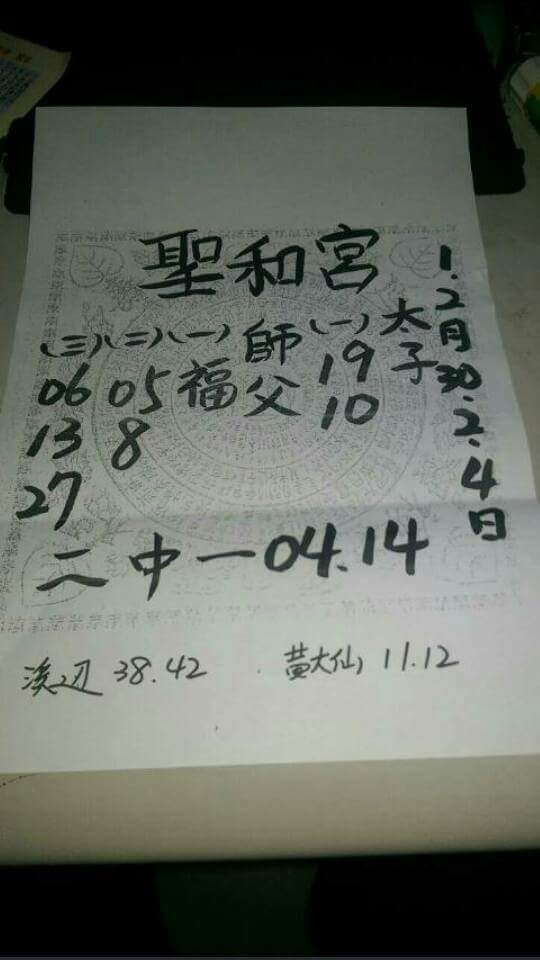 聖和宮
1.2月30.2.4日
太子
(一)
19
10
師父
(一)
福
(二)
05
8
(三)
06
13
27
二中一04.14
溪辺 38.42
黄大仙 11.12